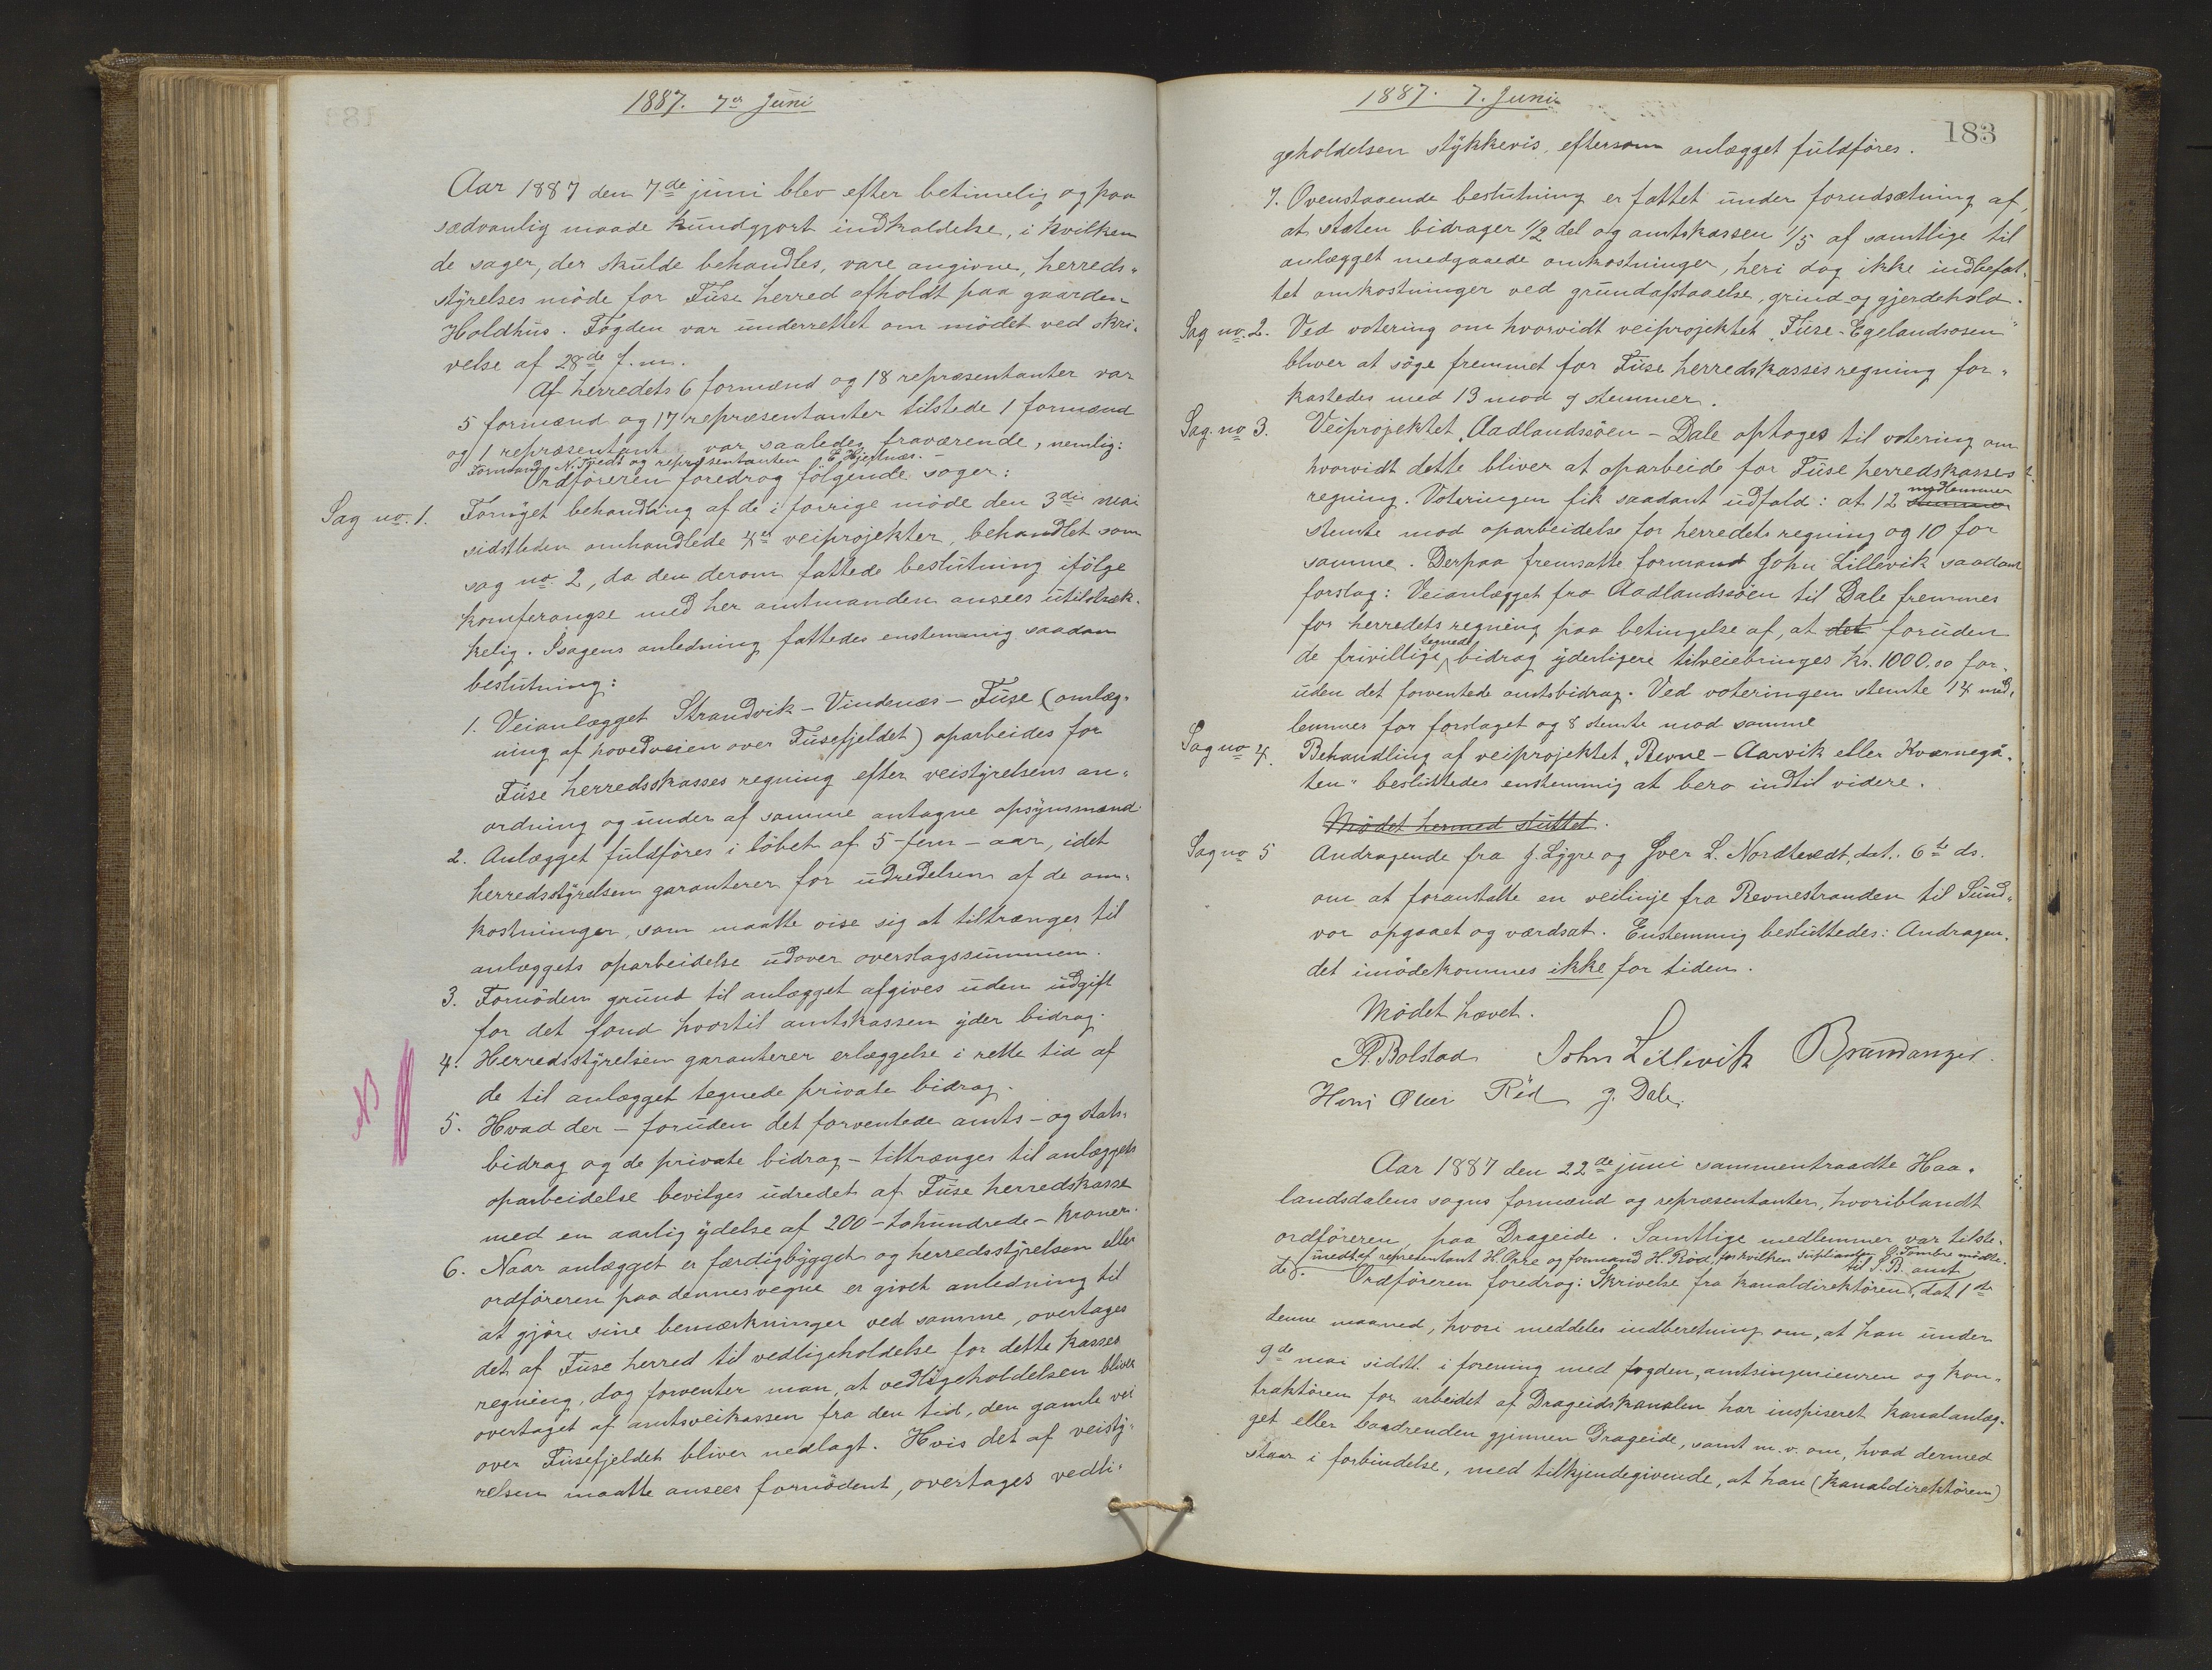 1887. 7de Juni
Aar 1887 den 7de juni blev efter betimelig og paa
sædvanlig maade kundgjort indkaldelse, i hvilken
de sager, der skulde behandles, vare angivne, herreds-
styrelses møde for Fuse herred afholdt paa gaarden
Holdhus. Fogden var underrettet om mødet ved skri-
velse af 28de f. m.
Af herredets 6 formænd og 18 repræsentanter var
5 formænd og 17 repræsentanter tilstede 1 formænd
og 1 repræsentant var saaledes fraværende, nemlig:
Formand N. Tvedt og repræsentanten E. Hjeltnæs.
Ordføreren foredrog følgende sager:
Sag no. 1. Fornyet behandling af de i forrige møde den 3die mai
sidstleden omhandlede 4re veiprojekter, behandlet som
sag no. 2, da den derom fattede beslutning ifølge
konferangse med her amtmanden ansees utilstræk-
kelig. I sagens anledning fattedes enstemmig saadan
beslutning:
1. Veianlægget Strandvik - Vindenæs - Fuse (omlæg-
ning af hovedveien over Fusefjeldet) oparbeides for
Fuse herredsskasses regning efter veistyrelsens an-
ordning og under af samme antagne opsynsmænd
2. Anlægget fuldføres i løbet af 5 - fem - aar, idet
herredsstyrelsen garanterer for udredelsen af de om-
kostninger, som maatte vise sig at tiltrænges til
anlæggets oparbeidelse udover overslagssummen.
3. Fornøden grund til anlægget afgives uden udgift
for det fond hvortil amtskassen yder bidrag.
4. Herredsstyrelsen garanterer erlæggelse i rette tid af
de til anlægget tegnede private bidrag.
5. Hvad der - foruden det forventede amts- og stats-
bidrag og de private bidrag - tiltrænges til anlæggets
oparbeidelse bevilges udredet af Fuse herredskasse
med en aarlig ydelse af 200 - tohundrede - kroner.
6. Naar anlægget er færdigbygget og herredsstyrelsen eller
ordføreren paa dennes vegne er givet anledning til
at gjøre sine bemærkninger ved samme, overtages
det af Fuse herred til vedligeholdelse for dette kasses
regning, dog forventer man, at vedligeholdelsen bliver
overtaget af amtsveikassen fra den tid, den gamle vei
over Fusefjeldet bliver nedlagt. Hvis det af veisty-
relsen maatte ansees fornødent, overtages vedli-
1887. 7. Juni
183
geholdelsen stykkevis, eftersom anlægget fuldføres.
7. Ovenstaaende beslutning er fattet under forudsætning af,
at staten bidrager 1/2 del og amtskassen 1/5 af samtlige til
anlægget medgaaede omkostninger, heri dog ikke indbefat-
tet omkostninger ved grundafstaaelse, grind og gjerdehold.
Sag no. 2. Ved votering om hvorvidt veiprojektet "Fuse - Egelandsosen"
bliver at søge fremmet for Fuse herredskasses regning for-
kastedes med 13 mod 9 stemmer.
Sag. no 3. Veiprojektet "Aadlandssøen - Dale optoges til votering om
hvorvidt dette bliver at oparbeide for Fuse herredskasses
regning. Voteringen fik saadant udfald: at 12 stemmer medlemmer
stemte mod oparbeidelse for herredets regning og 10 for
samme. Derpaa fremsatte formand John Lillevik saadant
forslag: Veianlægget fra Aadlandssøen til Dale fremmes
for herredets regning paa betingelse af, at det foruden
de frivillige tegnede bidrag yderligere tilveiebringes kr. 1000.00 for-
uden det forventede amtsbidrag. Ved voteringen stemte 14 med-
lemmer for forslaget og 8 stemte mod samme
Sag no 4. Behandling af veiprojektet "Revne - Aarvik eller Kværnegå-
ten" besluttedes enstemmig at bero indtil videre.
Mødet hermed sluttet.
Sag no 5 Andragende fra J. Lygre og Iver L. Nordtvedt, dat. 6te ds.
om at foranstalte en veilinje fra Revnestranden til Sund-
vor opgaaet og værdsat. Enstemmig besluttedes: Andragen-
det imødekommes ikke for tiden.
Mødet hævet.
A. Bolstad John Lillevik Brandanger.
Hans Røed J. Dale.
Aar 1887 den 22de juni sammentraadte Haa-
landsdalens sogns formænd og repræsentanter, hvoriblandt
ordføreren, paa Drageide. Samtlige medlemmer var tilste-
de undtaf representant H. Orre og formand H. Röd, for hvilken supliant G. Tombre mødte.
Ordføreren foredrog: Skrivelse fra kanaldirektøren til S. B. amt, dat 1ste
denne maaned, hvori meddeles indberetning om, at han under
9de mai sidstl. i forening med fogden, amtsingeniøren og kon-
traktøren for arbeidet af Drageidskanalen har inspiseret kanalanlæg-
get eller baadrenden gjennem Drageide, samt m. v. om, hvad dermed
staar i forbindelse, med tilkjendegivende, at han (kanaldirektøren)